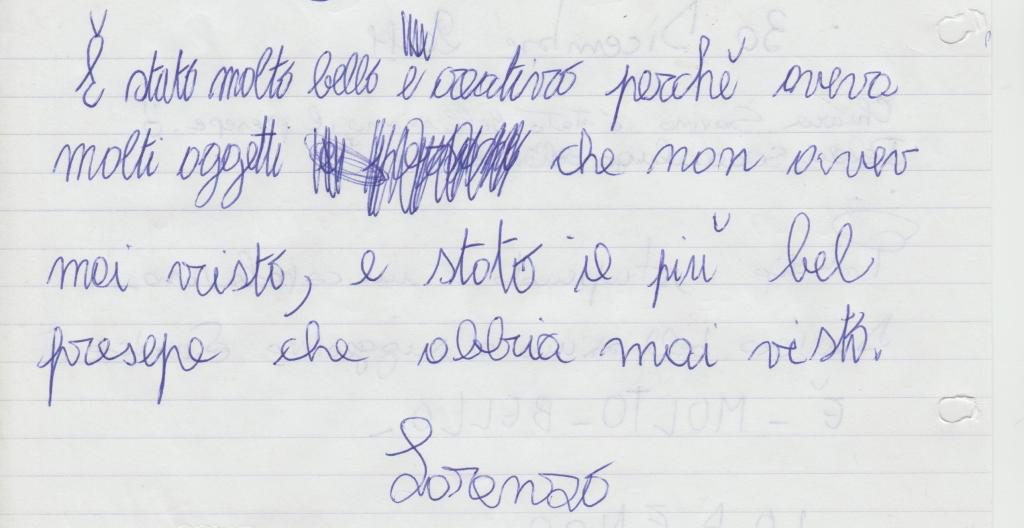 È stato molto bello e creativo perchè aveva
molti oggetti che non avev
mai visto, e stato il più bel
presepe che abbia mai visto.
Lorenzo